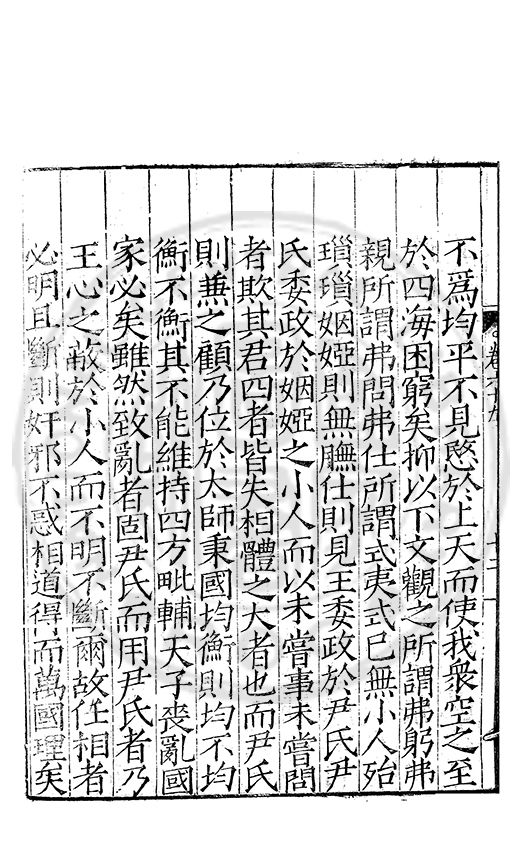 不爲均平不見愍於上天而使我衆空之至
於四海困窮矣抑以下文觀之所謂弗躬弗
親所謂弗問弗仕所謂式夷式已無小人殆
瑣瑣姻婭則無膴仕則見王委政於尹氏尹
氏委政於姻婭之小人而以未嘗事未嘗問
者欺其君四者皆失相體之大者也而尹氏
則兼之顧乃位於太師秉國均衡則均不均
衡不衡其不能維持四方毗輔天子喪亂國
家必矣雖然致亂者固尹氏而用尹氏者乃
王心之蔽於小人而不明不斷爾故任相者
必明且斷則奸邪不惑相道得而萬國理矣
卷六十九
十二